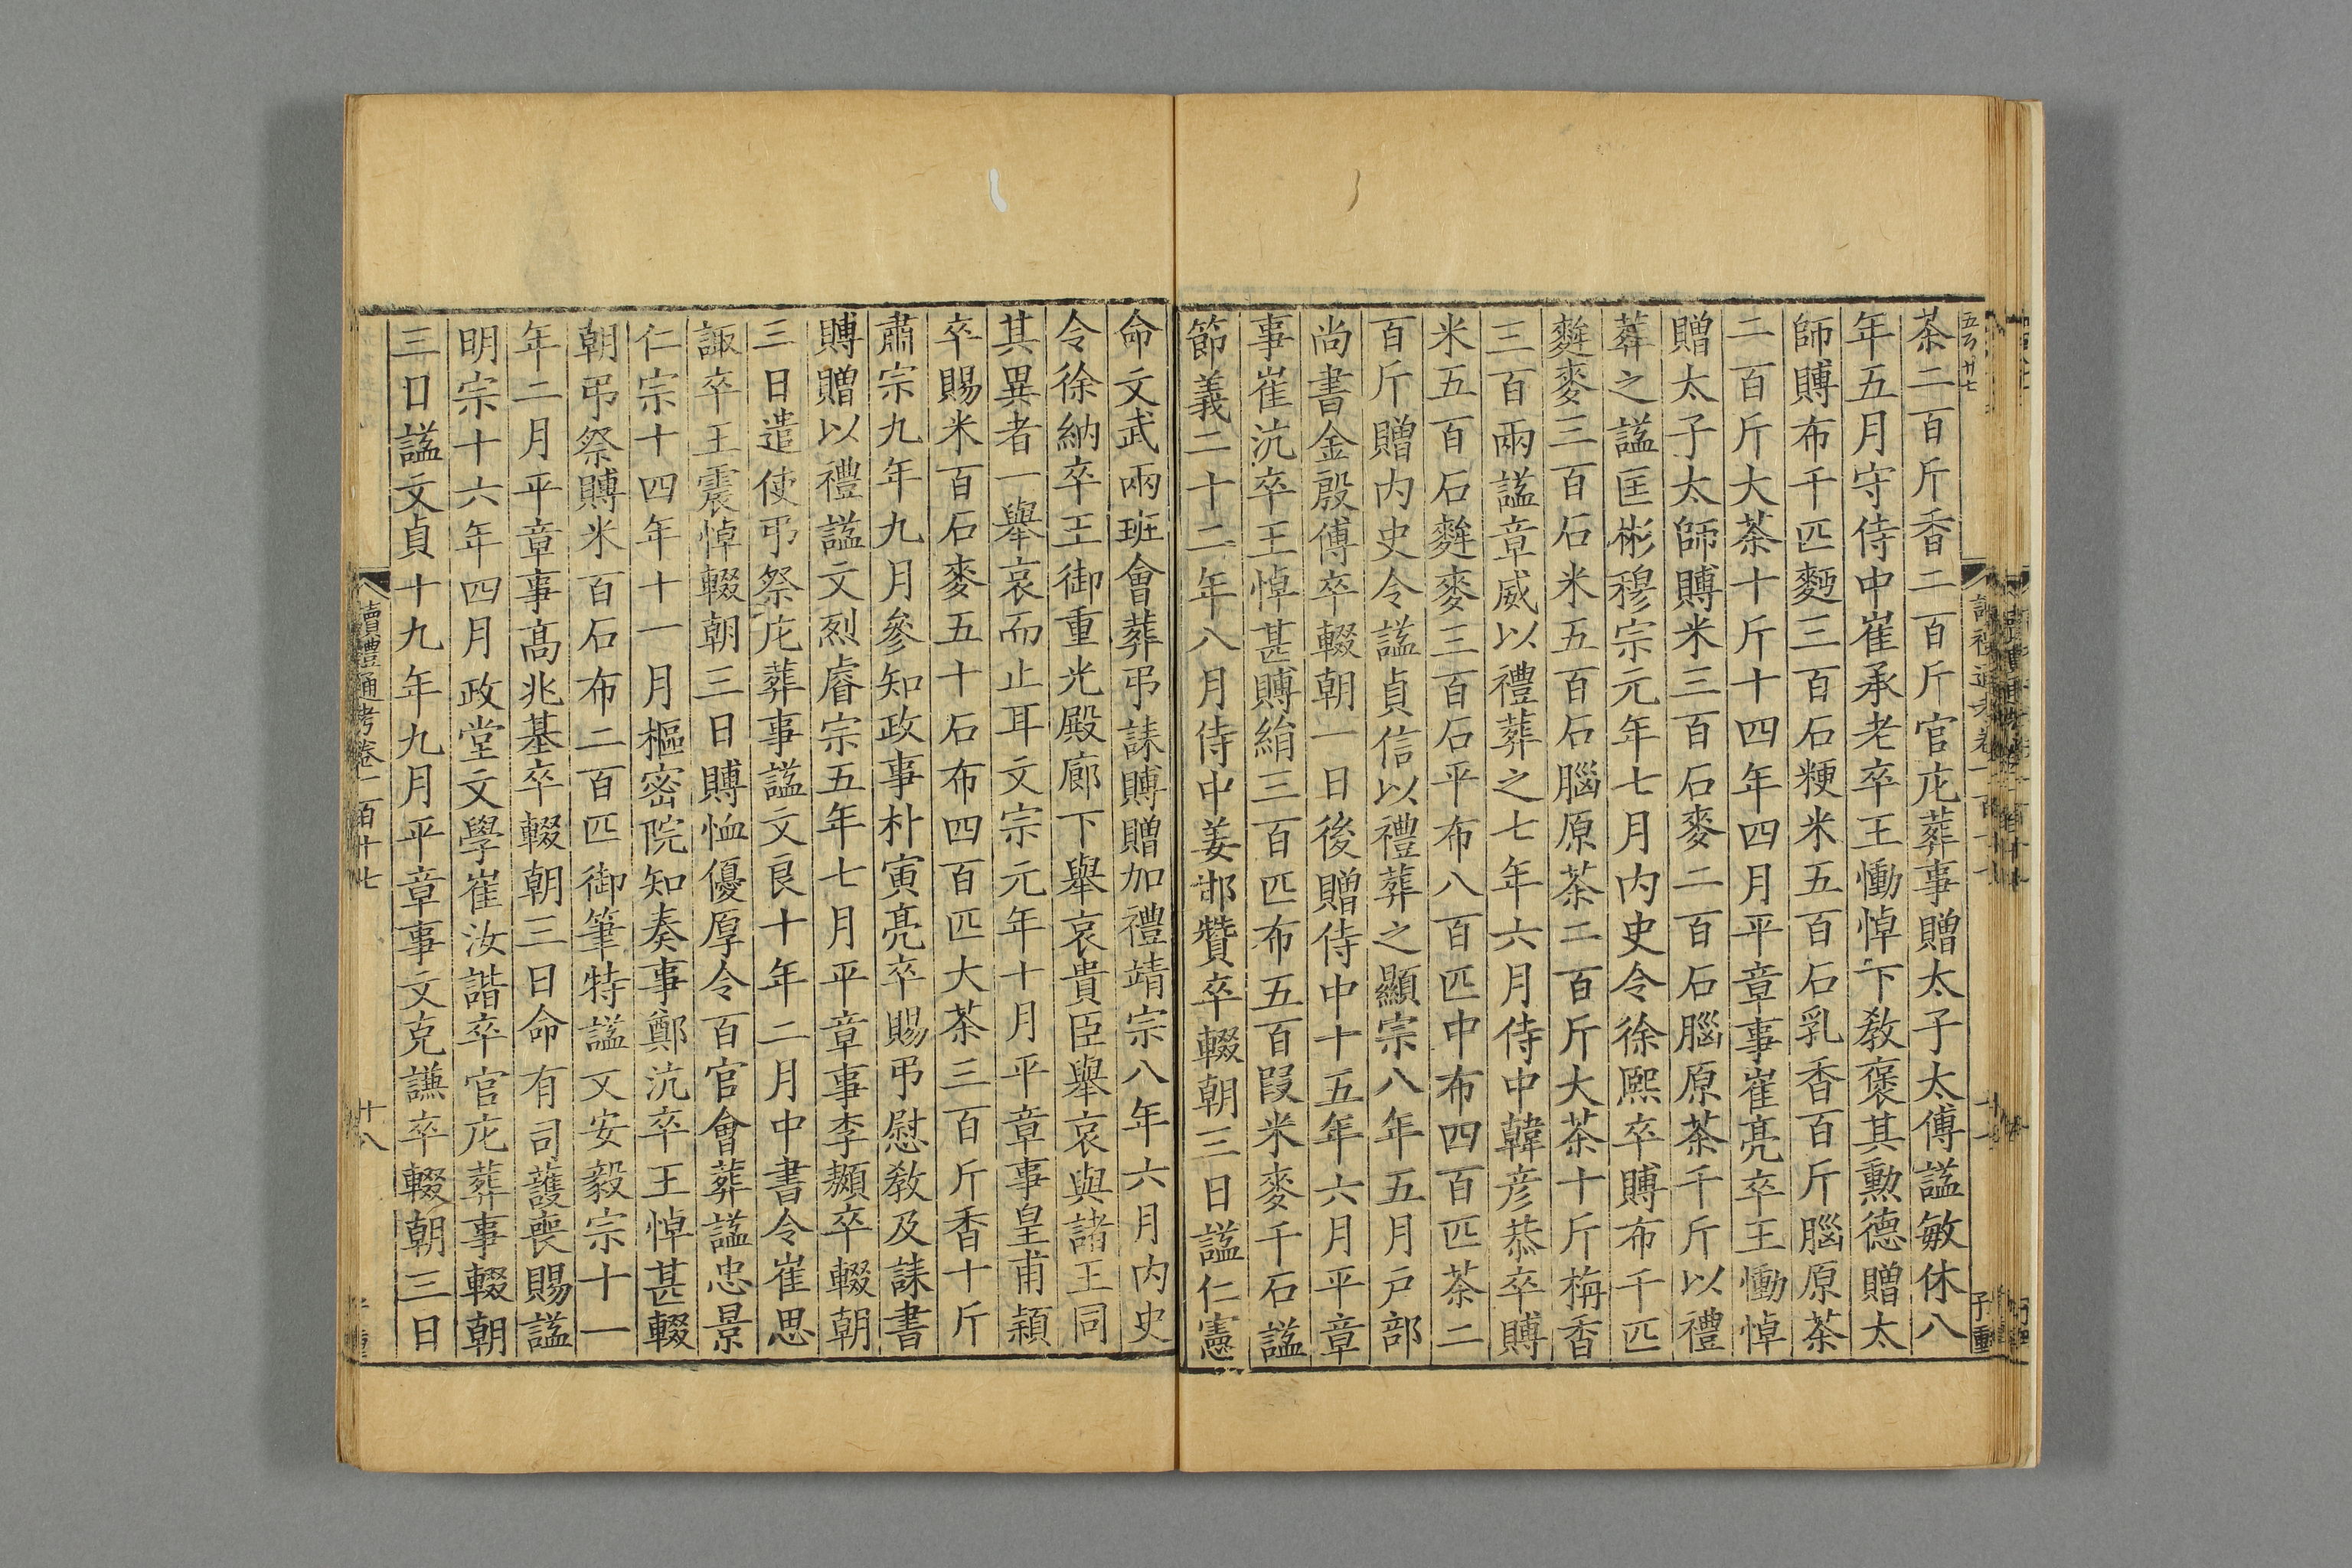 茶二百斤香二百斤官庀葬事贈太子太傅諡敏休八
年五月守侍中崔承老卒王慟悼下教褒其勲德贈太
師賻布千匹麪三百石粳米五百石乳香百斤腦原茶
二百斤大茶十斤十四年四月平章事崔亮卒王慟悼
贈太子太師賻米三百石麥二百石腦原茶千斤以禮
葬之諡匡彬穆宗元年七月内史令徐熙卒賻布千匹
麰麥三百石米五百石腦原茶二百斤大茶十斤栴香
三百兩諡章威以禮葬之七年六月侍中韓彦恭卒賻
米五百石麰麥三百石平布八百匹中布四百匹茶二
百斤贈内史令諡貞信以禮葬之顯宗八年五月戸部
尚書金殷傅卒輟朝一日後贈侍中十五年六月平章
事崔沆卒王悼甚賻絹三百匹布五百叚米麥千石諡
節義二十二年八月侍中姜邯贊卒輟朝三日諡仁憲
命文武兩班會葬弔誄賻贈加禮靖宗八年六月内史
令徐納卒王御重光殿廊下舉哀貴臣舉哀與諸王同
其異者一舉哀而止耳文宗元年十月平章事皇甫頴
卒賜米百石麥五十石布四百匹大茶三百斤香十斤
肅宗九年九月參知政事朴寅亮卒賜弔慰敎及誄書
賻贈以禮諡文烈睿宗五年七月平章事李䫨卒輟朝
三日遣使弔祭庀葬事諡文良十年二月中書令崔思
諏卒王震悼輟朝三日賻恤優厚令百官會葬諡忠景
仁宗十四年十一月樞密院知奏事鄭沆卒王悼甚輟
朝弔祭賻米百石布二百匹御筆特諡文安毅宗十一
年二月平章事高兆基卒輟朝三日命有司護喪賜諡
明宗十六年四月政堂文學崔汝諧卒官庀葬事輟朝
三日諡文貞十九年九月平章事文克謙卒輟朝三日
讀禮通考卷一百十七
十八